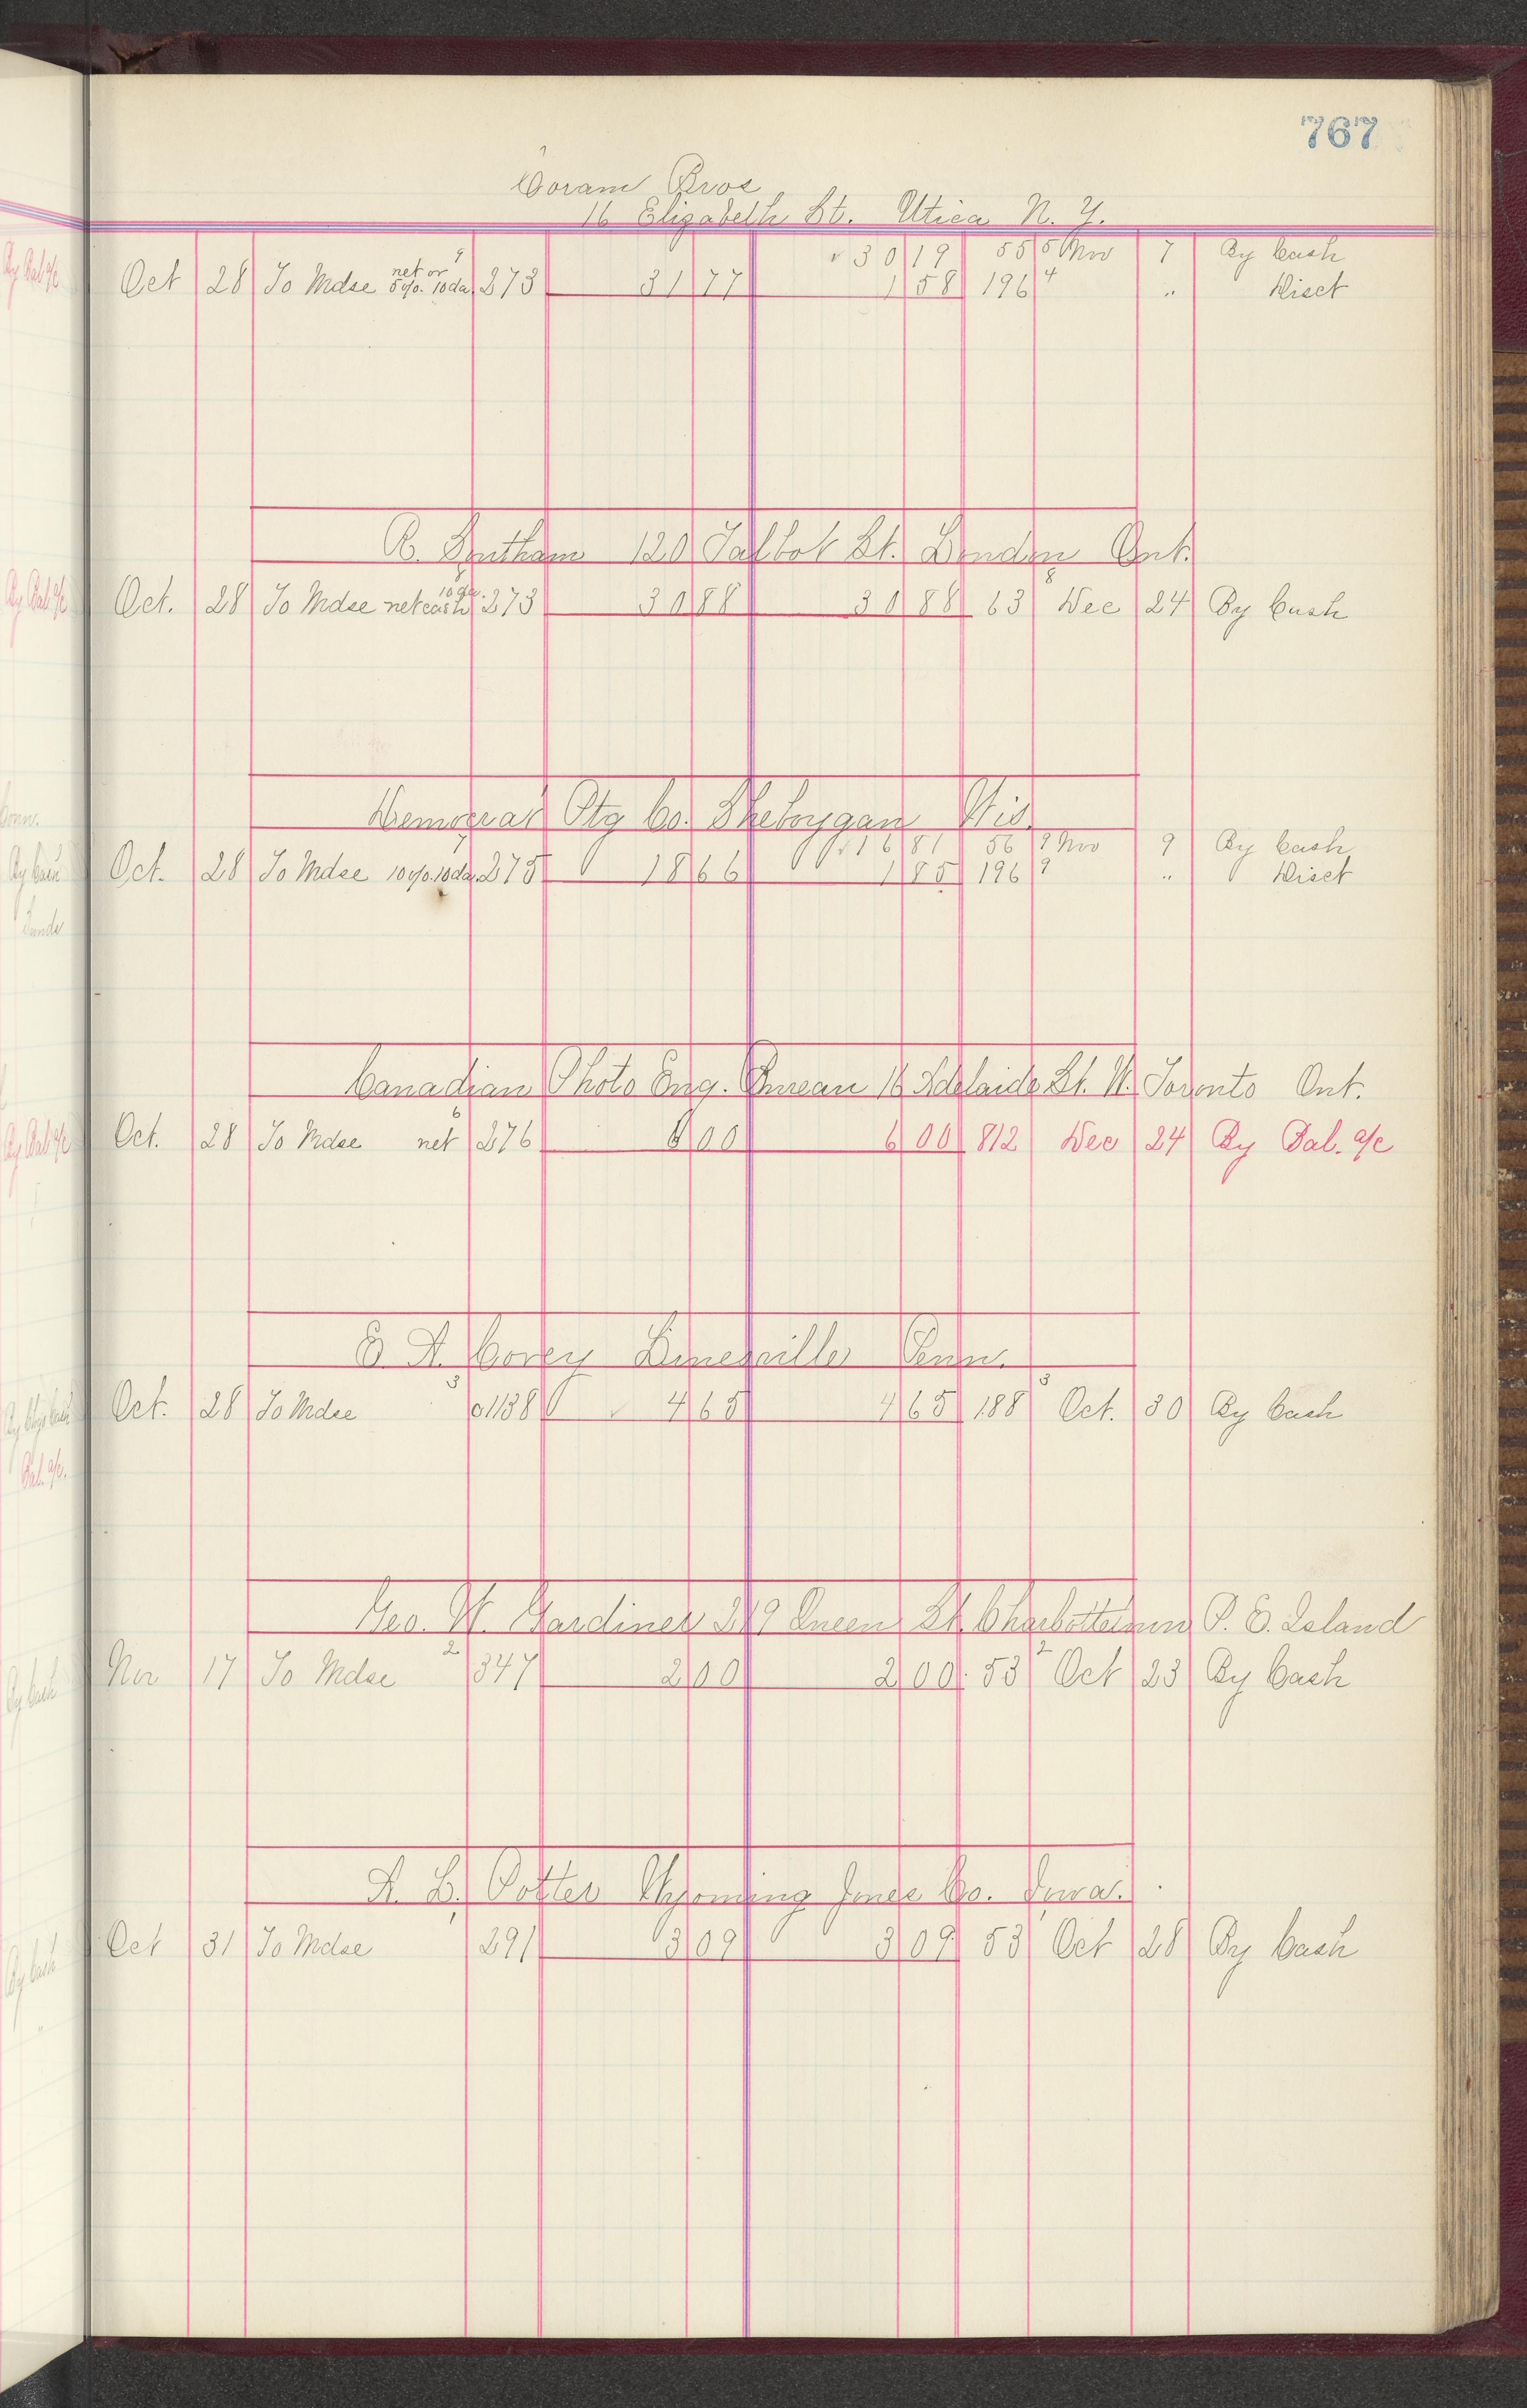 767
Coram Bros
16 Elizabeth St. Utica N. Y.
30 19 55 5 Nov 7 By Cash
Oct 28 To Mdse net or 5%. 10da 273 31 77 1 58 196 4 " Disct
R. Southam 120 Talbot St. London Ont.
Oct. 28 To Mdse net cash 10 da. 273 30 88 30 88 63 8 Dec 24 By Cash
Democrat Ptg Co. Sheboygan Wis.
16 81 56 9 Nov 9 By Cash
Oct. 28 To Mdse 10%.10da. 275 18 66 1 85 196 9 " Disct
Canadian Photo Eng. Bureau 16 Adelaide St. W. Toronto Ont.
Oct. 28 To Mdse net 6 276 6 00 6 00 812 Dec 24 By Bal. a/c
E A. Corey Linesville Penn.
Oct. 28 To Mdse 3 c1138 4 65 4 65 188 3 Oct. 30 By Cash
Geo. W. Gardiner 219 Queen St. Charlottetown P. E. Island
Nov 17 To Mdse 2 347 2 00 2 00 53 2 Oct 23 By Cash
A. L. Potter Wyoming Jones Co. Iowa.
Oct 31 To Mdse 1 291 3 09 3 09 53 1 Oct 28 By Cash